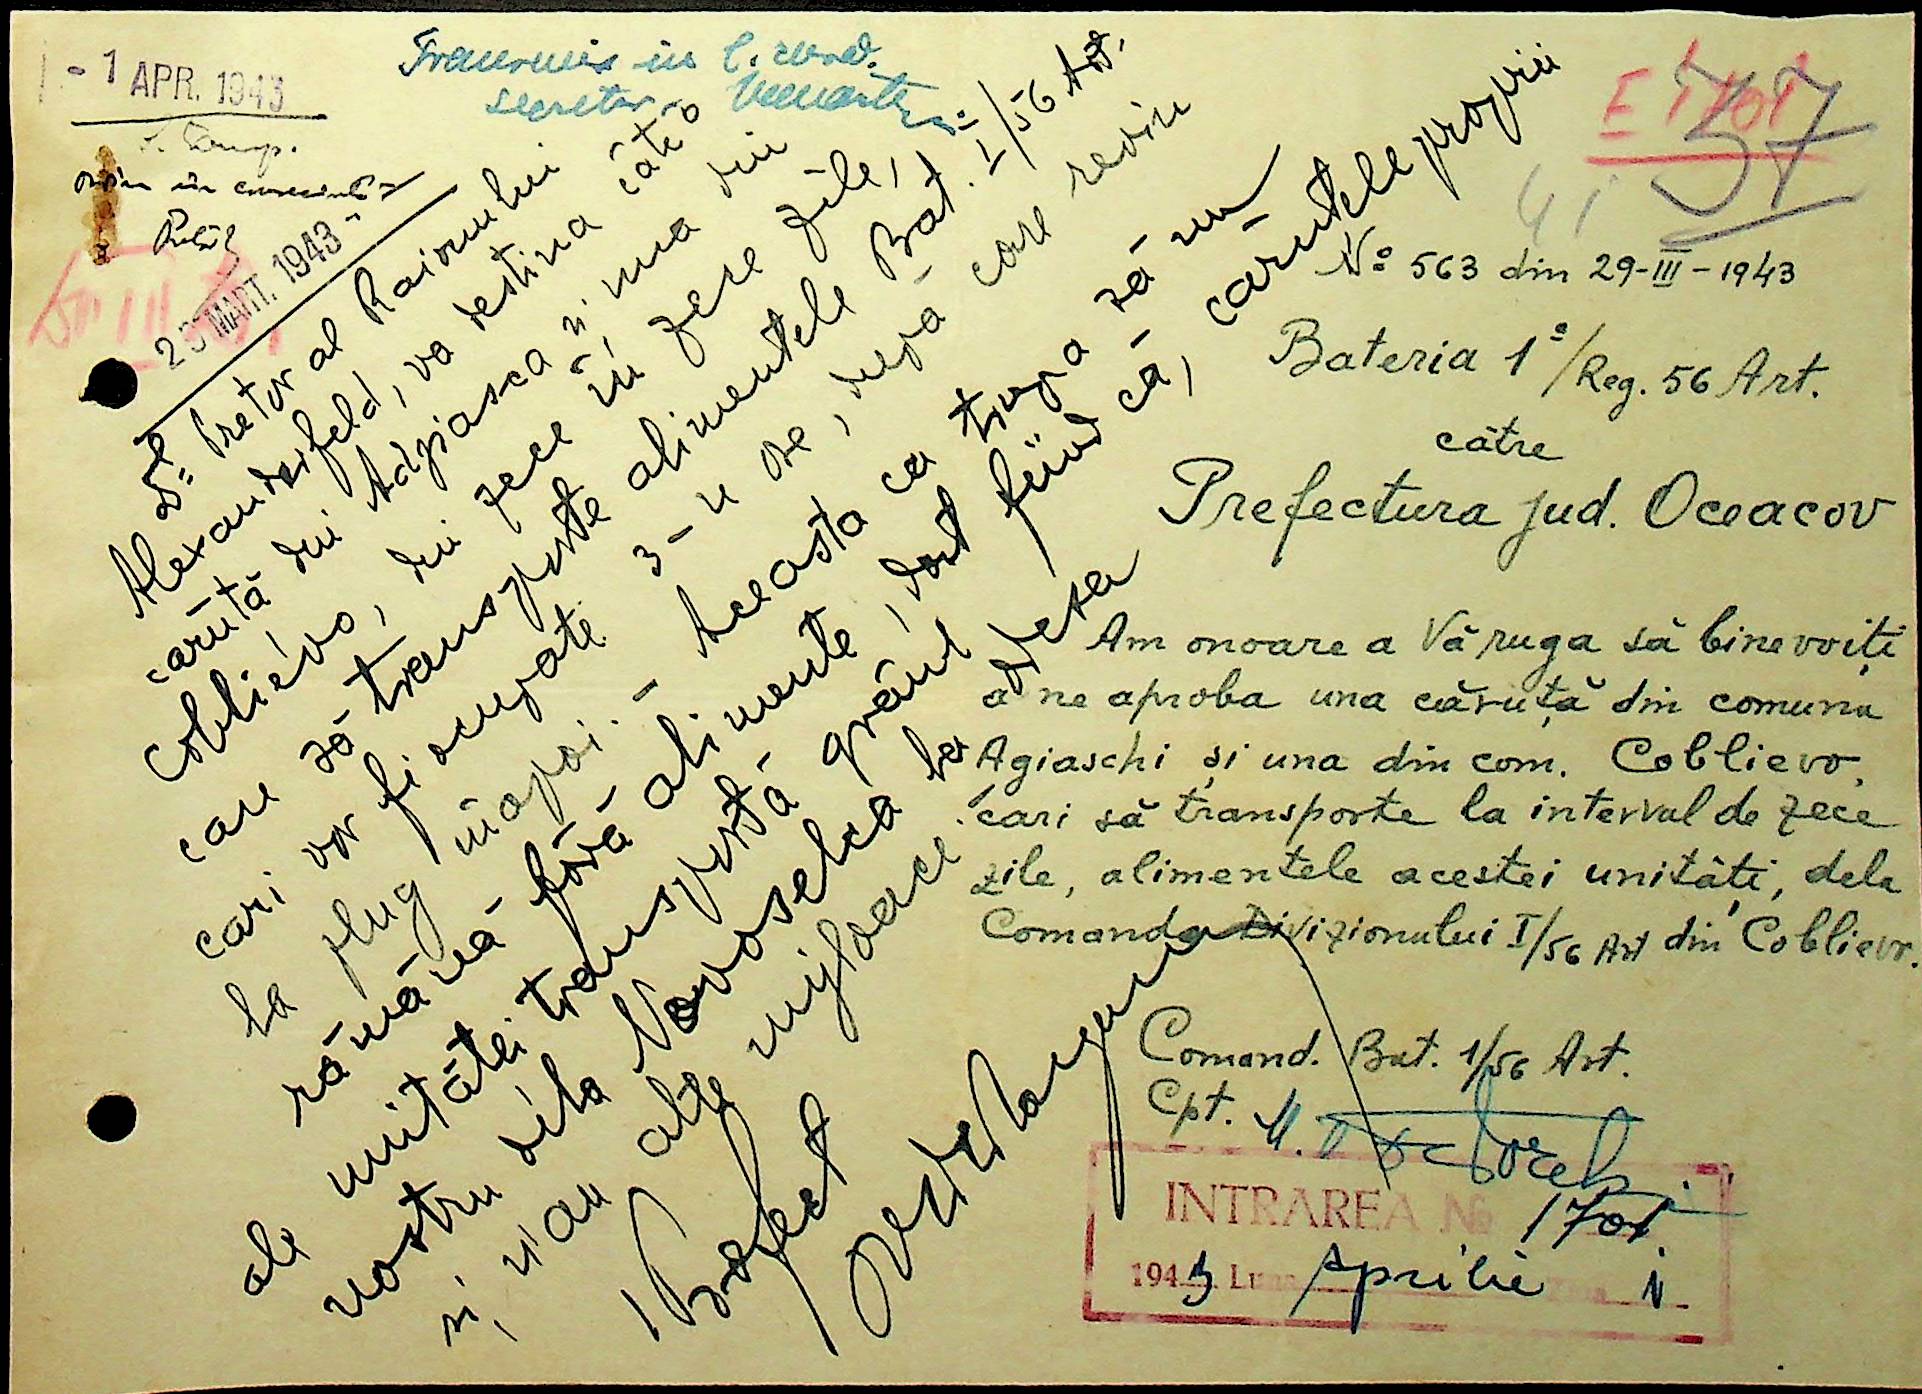 - 1 APR. 1943
29 MART. 1943
secretar
E 1701
37
No 563 din 29-III-1943
Bateria 1a/Reg. 56 Art.
către
Prefectura jud. Oceacov
Am onoare a Vă ruga să binevoiți
a ne aproba una căruță din comuna
Agiaschi și una din com. Coblievo,
cari să transporte la interval de zece
zile, alimentele acestei unități, dela
Comanda Divizionului I/56 Art din Coblievo.
Comand. Bat. 1/56 Art.
Cpt. M.
INTRAREA No 1701
1943 Luna Aprilie 1
Dl. Pretor al Raionului
Alexanderfeld, va destina câte o
căruță din Adjiasca și una din
Coblievo, din zece în zece zile,
care să transporte alimentele Bat. I/56 Art.
cari vor fi ocupate 3-4 ore, după care revin
la plug înapoi. - Aceasta ca trupa să nu
rămână fără alimente, dat fiind că, căruțele proprii
ale unităței transportă grâul
nostru dela Novoselca la Odesa
și n'au alte mijloace.
Prefect